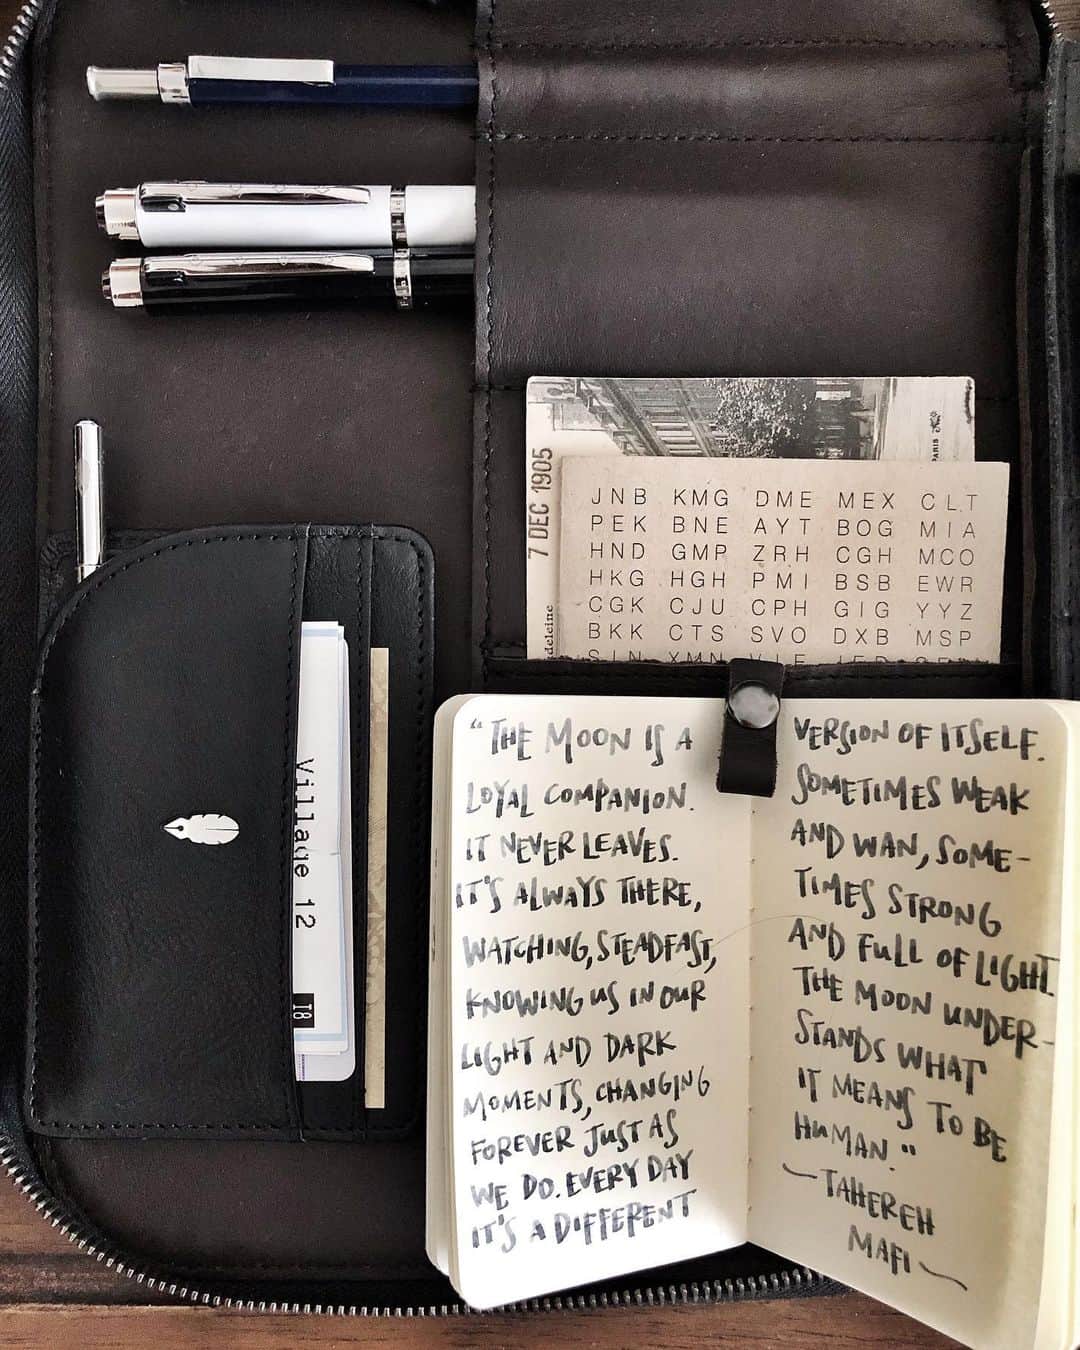 PARIS
7 DEC 1905
JNB KMG DME MEX CLT
PEK BNE AYT BOG MIA
HND GMP ZRH CGH MCO
HKG HGH PMI BSB EWR
CGK CJU CPH GIG YYZ
BKK CTS SVO DXB MSP
Village 12
I8
"THE MOON IS A
LOYAL COMPANION.
IT NEVER LEAVES.
IT'S ALWAYS THERE,
WATCHING, STEADFAST,
KNOWING US IN OUR
LIGHT AND DARK
MOMENTS, CHANGING
FOREVER JUST AS
WE DO. EVERY DAY
IT'S A DIFFERENT
VERSION OF ITSELF.
SOMETIMES WEAK
AND WAN, SOME-
TIMES STRONG
AND FULL OF LIGHT.
THE MOON UNDER-
STANDS WHAT
IT MEANS TO BE
HUMAN."
~TAHEREH
MAFI~